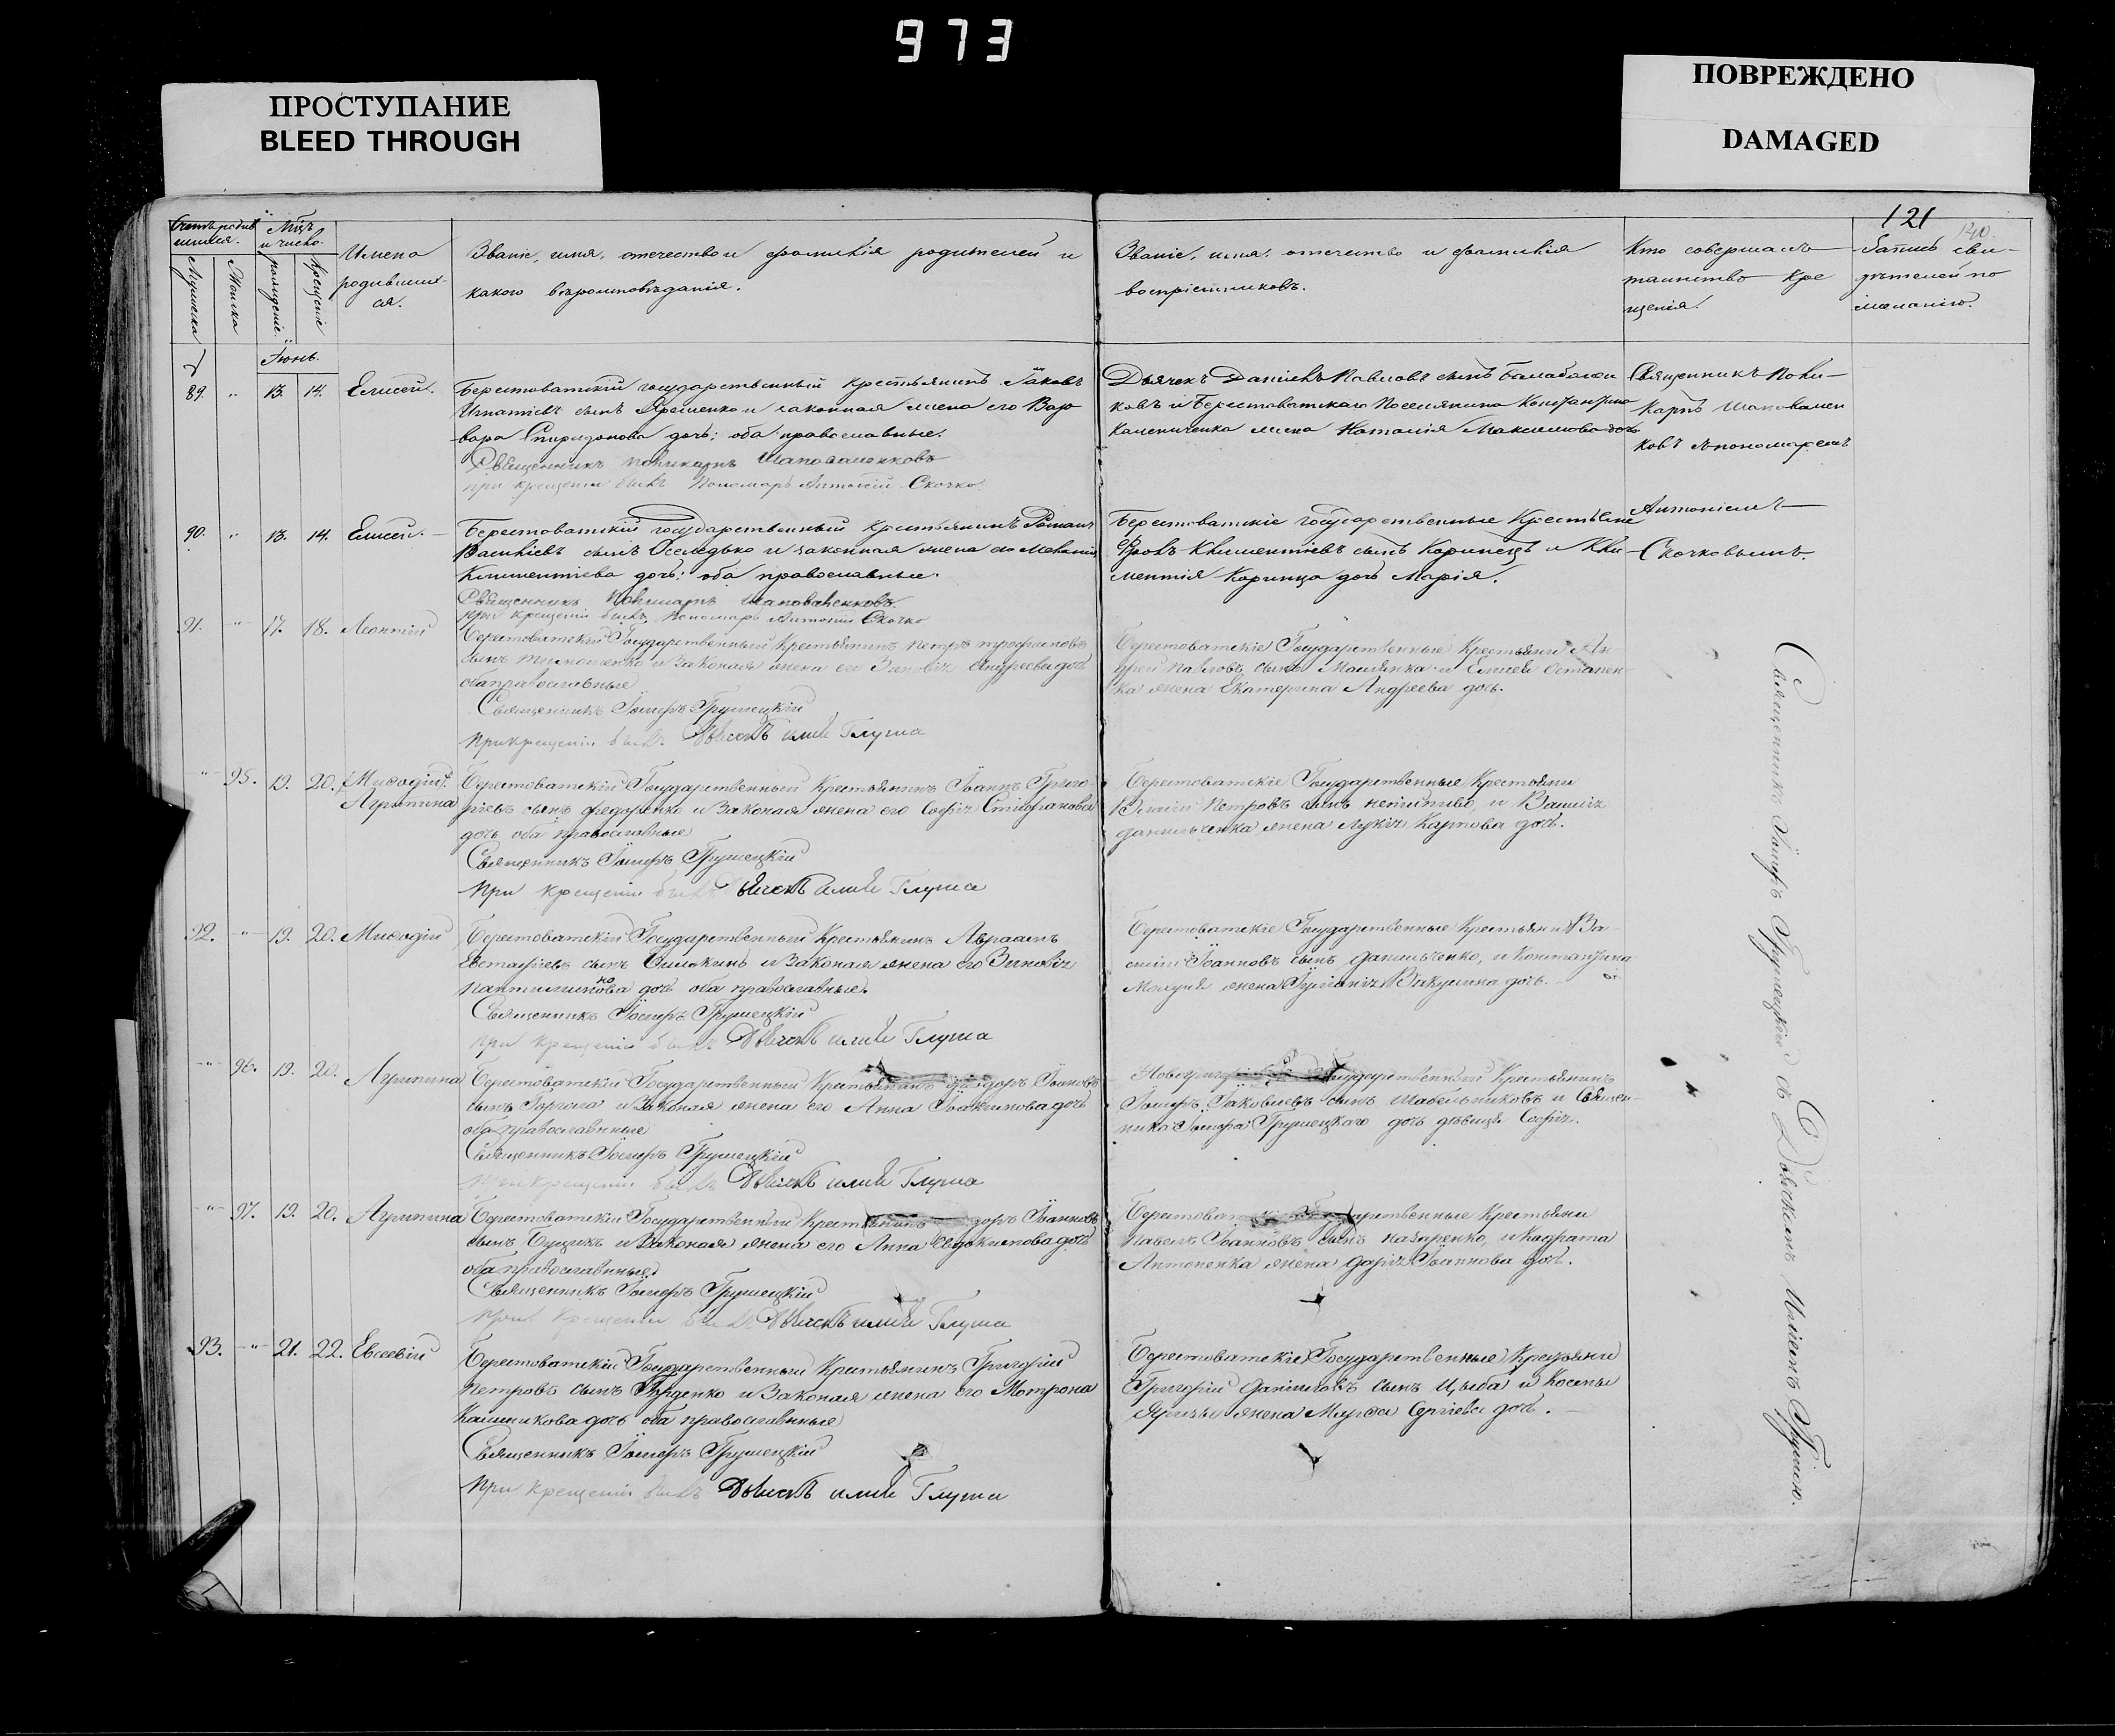 973
ПРОСТУПАНИЕ
BLEED THROUGH
ПОВРЕЖДЕНО
DAMAGED
121
Мѣц.
и число.
Мужеска
Женска
рожденiе.
Крещенiе
Имена
родивших-
ся.
Званiе, имя, отечество и фамилiя родителей и
какого вѣроисповѣданiя.
Званiе, имя, отечество и фамилiя
воспрiемниковъ.
Кто совершалъ
таинство кре
щенiя.
Запись сви-
дѣтелей по
желанiю.
Iюнь.
89. " 13. 14. Елисей.
Берестоватскiй государственный крестьянинъ Iаковъ
Игнатiевъ сынъ Ярошенко и законная жена его Вар
вара Спиридонова дочь; оба православные.
Священникъ Поликарпъ Шаповаленковъ
при крещенiи былъ Пономарь Антонiй Скочко.
Дьячекъ Данiилъ Павловъ сынъ Балабанов
ковъ и Берестоватскаго Поселянина Константина
Калениченка жена Наталiя Максимова дочь
Священникъ Поли-
карпъ Шаповален
ковъ съ пономаремъ
Антонiемъ
Скочковымъ.
90. " 13. 14. Елисей.
Берестоватскiй государственный крестьянинъ Романъ
Василiевъ сынъ Оселедько и законная жена его Меланiя
Климентiева дочь; оба православные.
Священникъ Поликарпъ Шаповаленковъ.
при крещенiи былъ Пономарь Антонiй Скочко
Берестоватскiе государственные Крестьяне
Яковъ Климентiевъ сынъ Коринецъ и Кли
ментiя Коринца дочь Марiя.
91. " 17. 18. Леонтiй
Берестоватскiй Государственный Крестьянинъ Петръ Трофимовъ
сынъ Тимошенко и Законая жена его Зиновiя Андреева дочь
оба православные
Священникъ Iосифъ Грушецкiй
При крещенiи былъ Дьячекъ Илiя Глуша
Берестоватскiе Государственные Крестьяни Ан
дрей Павловъ сынъ Маслянка и Елисея Остапен
ка жена Екатерина Андреева дочь.
" 95. 19. 20. Агрипина
Берестоватскiй Государственный Крестьянинъ Iоаннъ Григо
рiевъ сынъ Федоренко и Законая жена его Софiя Стефанова
дочь оба православные
Священникъ Iосифъ Грушецкiй
При крещенiи былъ Дьячекъ Илiя Глуша
Берестоватскiе Государственные Крестьяни
Петровъ сынъ и Василiя
Данильченка жена Лукiя Карпова дочь.
92. " 19. 20. Мифодiй
Берестоватскiй Государственный Крестьянинъ Авраамъ
Евстафiевъ сынъ и Законая жена его Зиновiя
дочь оба православные.
Священникъ Iосифъ Грушецкiй
При крещенiи былъ Дьячекъ Илiя Глуша
Берестоватскiе Государственные Крестьяни Ва
силiй Iоанновъ сынъ Данильченко, и Константина
жена Вакулина дочь.
" 96. 19. 20. Агрипина
Берестоватскiй Государственный Крестьянинъ Iоановъ
сынъ и Законая жена его Анна Iоакимова дочь
оба православные
Священникъ Iосифъ Грушецкiй
При крещенiи былъ Дьячекъ Илiя Глуша
Государственный Крестьянинъ
Iосифъ Iаковлевъ сынъ Шабельниковъ и Священ-
ника Iосифа Грушецкаго дочь дѣвица Софiя.
" 97. 19. 20. Агрипина
Берестоватскiй Государственный Крестьянинъ Iоанновъ
сынъ Буцикъ и Законая жена его Анна Евдокимова дочь
оба православные
Священникъ Iосифъ Грушецкiй
При крещенiи былъ Дьячекъ Илiя Глуша
Крестьяни
Павелъ Iоанновъ сынъ Назаренко, и Кодрата
Антоненка жена Дарiя Iоаннова дочь.
93. " 21. 22. Евсевiй
Берестоватскiй Государственный Крестьянинъ Григорiй
Петровъ сынъ и Законая жена его Мотрона
Калиникова дочь оба православные
Священникъ Iосифъ Грушецкiй
При крещенiи былъ Дьячекъ Илiя Глуша
Берестоватскiе Государственные Крестьяни
Григорiй Данiиловъ сынъ Цыба и
жена Марфа Сергiева дочь.
Священникъ Iосифъ Грушецкiй съ Дьячкомъ Илiею Глушею.